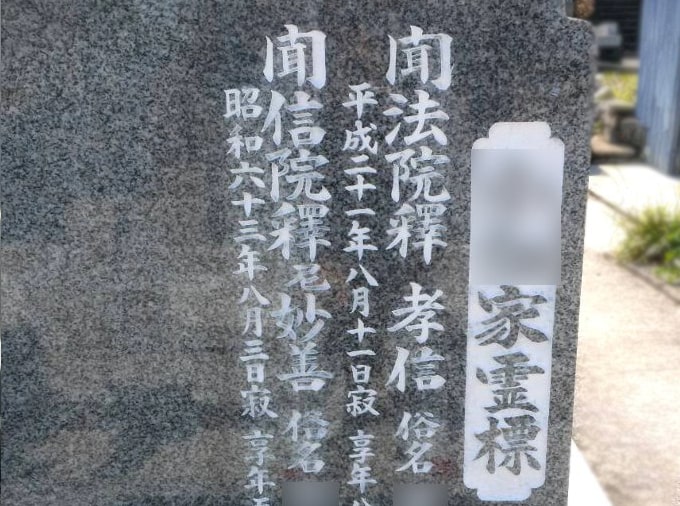 家霊標
聞法院釋 孝信 俗名
平成二十一年八月十一日寂 享年八
聞信院釋尼妙善 俗名
昭和六十三年八月三日寂 享年